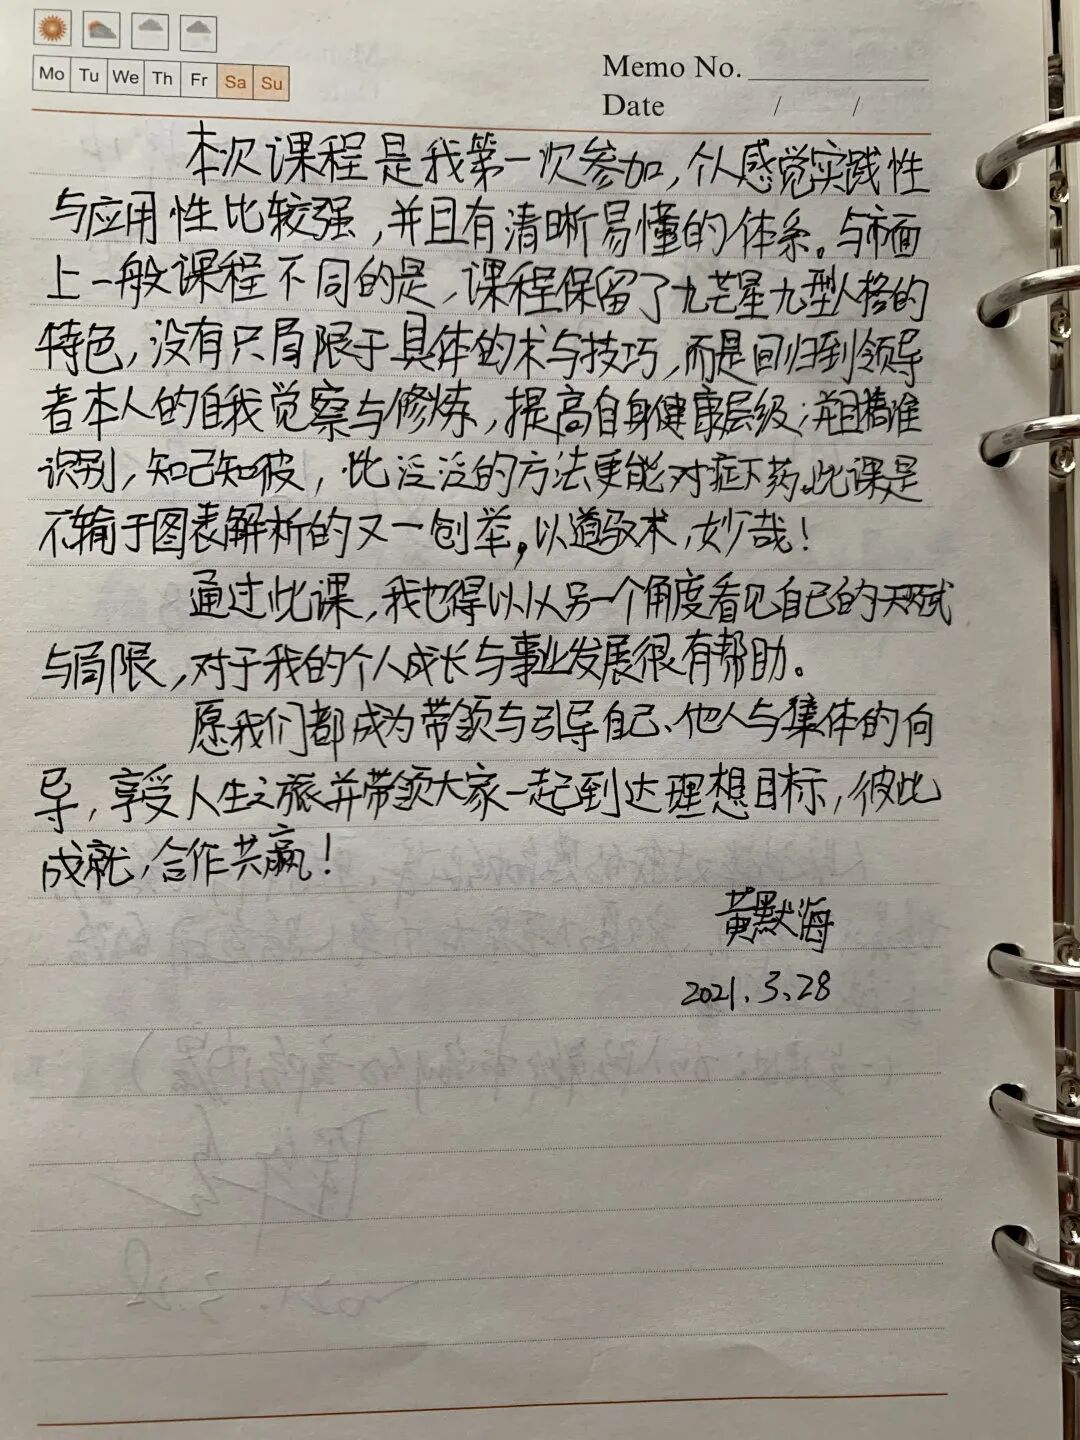 Mo Tu We Th Fr Sa Su
Memo No.
Date / /
本次课程是我第一次参加，个人感觉实践性
与应用性比较强，并且有清晰易懂的体系。与市面
上一般课程不同的是，课程保留了九芒星九型人格的
特色，没有只局限于具体的术与技巧，而是回归到领导
者本人的自我觉察与修炼，提高自身健康层级；并且精准
识别，知己知彼，比泛泛的方法更能对症下药。此课是
不输于图表解析的又一创举，以道驭术，妙哉！
通过此课，我也得以从另一个角度看见自己的天赋
与局限，对于我的个人成长与事业发展很有帮助。
愿我们都成为带领与引导自己、他人与集体的向
导，享受人生之旅并带领大家一起到达理想目标，彼此
成就，合作共赢！
黄默海
2021.3.28